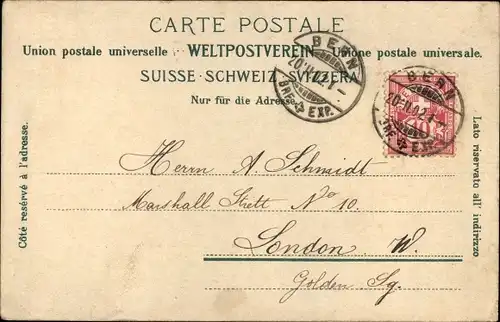 CARTE POSTALE
Union postale universelle WELTPOSTVEREIN Unione postale universale.
SUISSE·SCHWEIZ·SVIZZERA
Nur für die Adresse.
BERN
20.II.02.1–
BRF. EXP.
BERN
20.II.02.1–
BRF. EXP.
10
Côté resérvé à l'adresse.
Lato riservato all' indirizzo
Herrn A. Schmidt
Marshall Strett No 10.
London W.
Golden Sq.